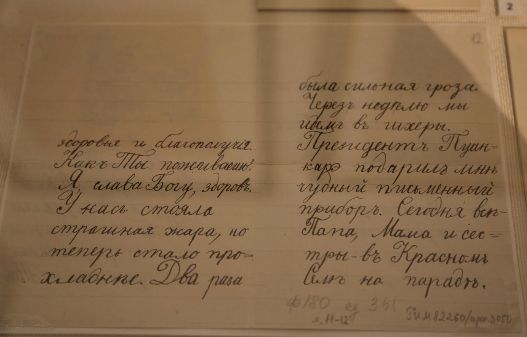 здоровья и благополучiя.
Какъ Ты поживаешь?
Я, слава Богу, здоровъ.
У насъ стояла
страшная жара, но
теперь стало про-
хладнѣе. Два раза
12
была сильная гроза.
Черезъ недѣлю мы
идемъ въ шхеры.
Президентъ Пуан-
карэ подарилъ мнѣ
чудный письменный
приборъ. Сегодня всѣ-
Папа, Мама и сес-
тры - въ Красномъ
Селѣ на парадѣ.
ф180 ед
л. 11-12
ГИМ 82260/арх
2